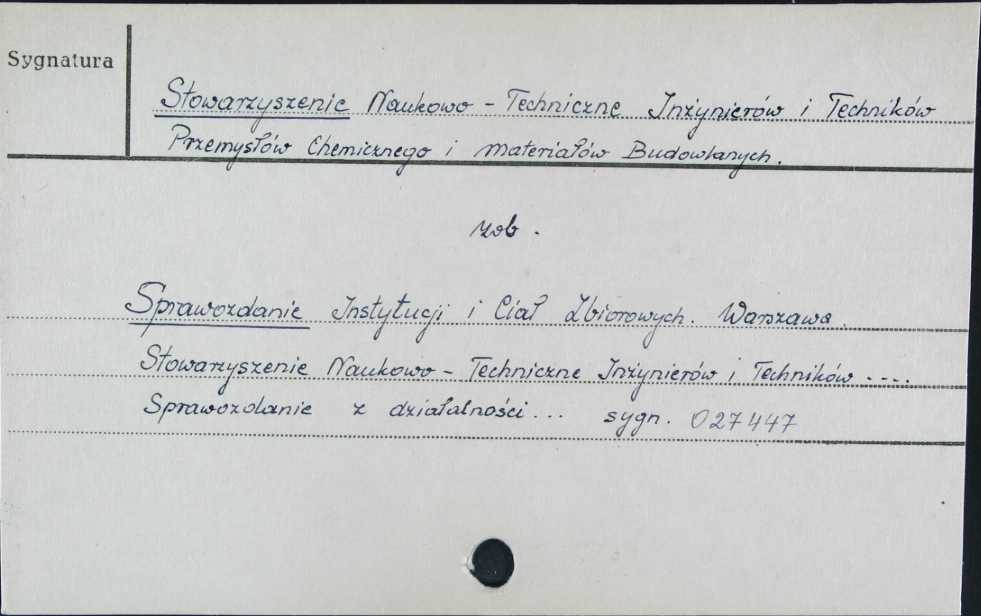 Sygnatura
Stowarzyszenie Naukowo - Techniczne Inżynierów i Techników
Przemysłów Chemicznego i Materiałów Budowlanych.
zob.
Sprawozdanie Instytucji i Ciał Zbiorowych. Warszawa.
Stowarzyszenie Naukowo - Techniczne Inżynierów i Techników ....
Sprawozdanie z działalności... sygn. 027447